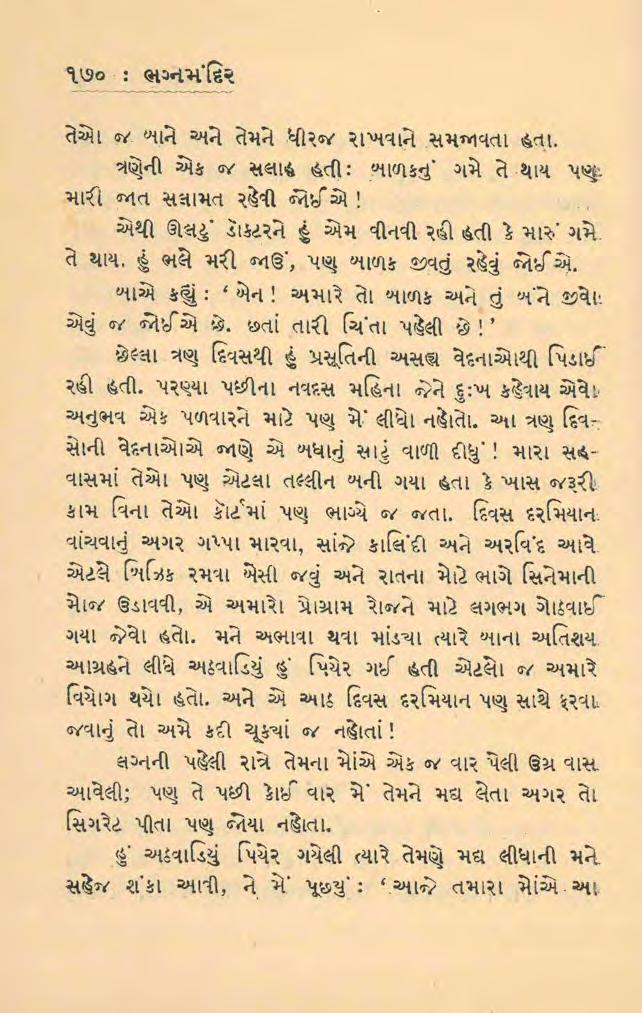 ૧૭૦ : ભગ્નમંદિર
તેઓ જ બાને અને તેમને ધીરજ રાખવાને સમજાવતા હતા.
ત્રણેની એક જ સલાહ હતી: બાળકનું ગમે તે થાય પણ
મારી જાત સલામત રહેવી જોઈએ !
એથી ઊલટું ડૉક્ટરને હું એમ વીનવી રહી હતી કે મારું ગમે
તે થાય. હું ભલે મરી જાઉં, પણ બાળક જીવતું રહેવું જોઈએ.
બાએ કહ્યું : ‘ બેન ! અમારે તો બાળક અને તું બંને જીવો
એવું જ જોઈએ છે. છતાં તારી ચિંતા પહેલી છે ! ’
છેલ્લા ત્રણ દિવસથી હું પ્રસૂતિની અસહ્ય વેદનાઓથી પિડાઈ
રહી હતી. પરણ્યા પછીના નવદસ મહિના જેને દુઃખ કહેવાય એવો
અનુભવ એક પળવારને માટે પણ મેં લીધો નહોતો. આ ત્રણ દિવ-
સોની વેદનાઓએ જાણે એ બધાનું સાટું વાળી દીધું ! મારા સહ-
વાસમાં તેઓ પણ એટલા તલ્લીન બની ગયા હતા કે ખાસ જરૂરી
કામ વિના તેઓ કૉર્ટમાં પણ ભાગ્યે જ જતા. દિવસ દરમિયાન
વાંચવાનું અગર ગપ્પા મારવા, સાંજે કાલિંદી અને અરવિંદ આવે
એટલે બ્રિઝિક રમવા બેસી જવું અને રાતના મોટે ભાગે સિનેમાની
મોજ ઉડાવવી, એ અમારો પ્રોગ્રામ રોજને માટે લગભગ ગોઠવાઈ
ગયા જેવો હતો. મને અભાવા થવા માંડ્યા ત્યારે બાના અતિશય
આગ્રહને લીધે અઠવાડિયું હું પિયેર ગઈ હતી એટલો જ અમારે
વિયોગ થયો હતો. અને એ આઠ દિવસ દરમિયાન પણ સાથે ફરવા
જવાનું તો અમે કદી ચૂક્યાં જ નહોતાં !
લગ્નની પહેલી રાત્રે તેમના મોંએ એક જ વાર પેલી ઉગ્ર વાસ
આવેલી; પણ તે પછી કોઈ વાર મેં તેમને મદ્ય લેતા અગર તો
સિગરેટ પીતા પણ જોયા નહોતા.
હું અઠવાડિયું પિયેર ગયેલી ત્યારે તેમણે મદ્ય લીધાની મને
સહેજ શંકા આવી, ને મેં પૂછયું : ‘ આજે તમારા મોંએ આ